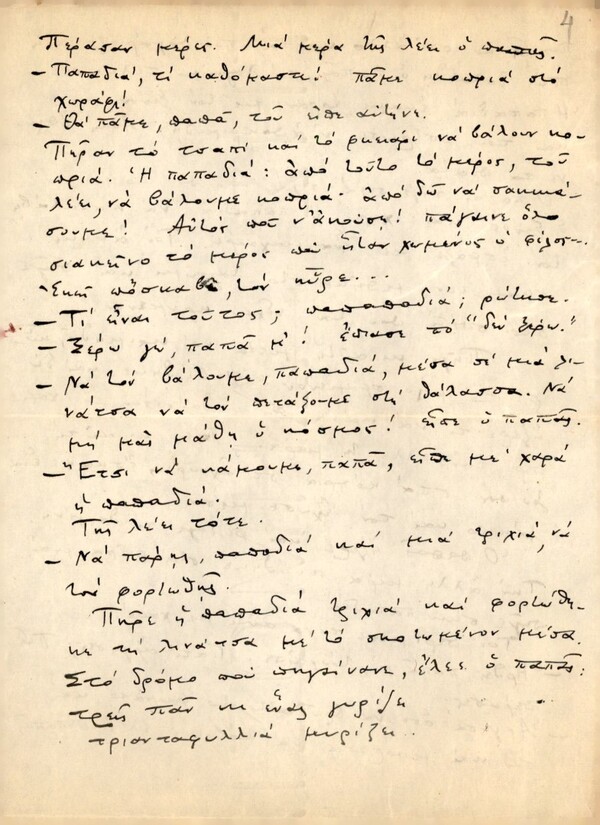 4
Πέρασαν μέρες. Μιά μέρα τῆς λέει ὁ παπᾶς.
– Παπαδιά, τί καθόμαστε! πᾶμε κοπριά στό
χωράφι!
– Θά πᾶμε, παπᾶ, τοῦ εἶπε αὐτήνε.
Πῆραν τό τσαπί καί τό φκυάρι νά βάλουν κο-
πριά. Ἡ παπαδιά: ἀπό τοῦτο τό μέρος, τοῦ
λέει, νά βάλουμε κοπριά· ἀπό δῶ νά σκάψ-
ουμε! Αὐτός ποῦ ν' ἀκούση! πάγαινε ὅλο
σιακεῖνο τό μέρος πού ἦταν χωμένος ὁ φίλος...
Ἐκεῖ πὤσκαβε, τόν ηὗρε...
– Τί εἶναι τοῦτος; παπαδιά; ρώτησε.
– Ξέρω γώ, παπᾶ μ'! ἔπιασε τό "δέν ξέρω."
– Νά τόν βάλουμε, παπαδιά, μέσα σέ μιά λι-
νάτσα νά τόν πετάξουμε στή θάλασσα. Νά
μή μᾶς μάθη ὁ κόσμος! εἶπε ὁ παπᾶς.
– Ἔτσι νά κάμουμε, παπᾶ, εἶπε μέ χαρά
ἡ παπαδιά.
Τῆς λέει τότε.
– Νά πάρης, παπαδιά καί μιά τριχιά, νά
τόν φορτωθῆς.
Πῆρε ἡ παπαδιά τριχιά καί φορτώθη-
κε τή λινάτσα μέ τό σκοτωμένον μέσα.
Στό δρόμο πού πηγαίνανε, ἔλεε ὁ παπᾶς:
τρεῖς πᾶν κι ἕνας γυρίζει
τριανταφυλλιά μυρίζει..